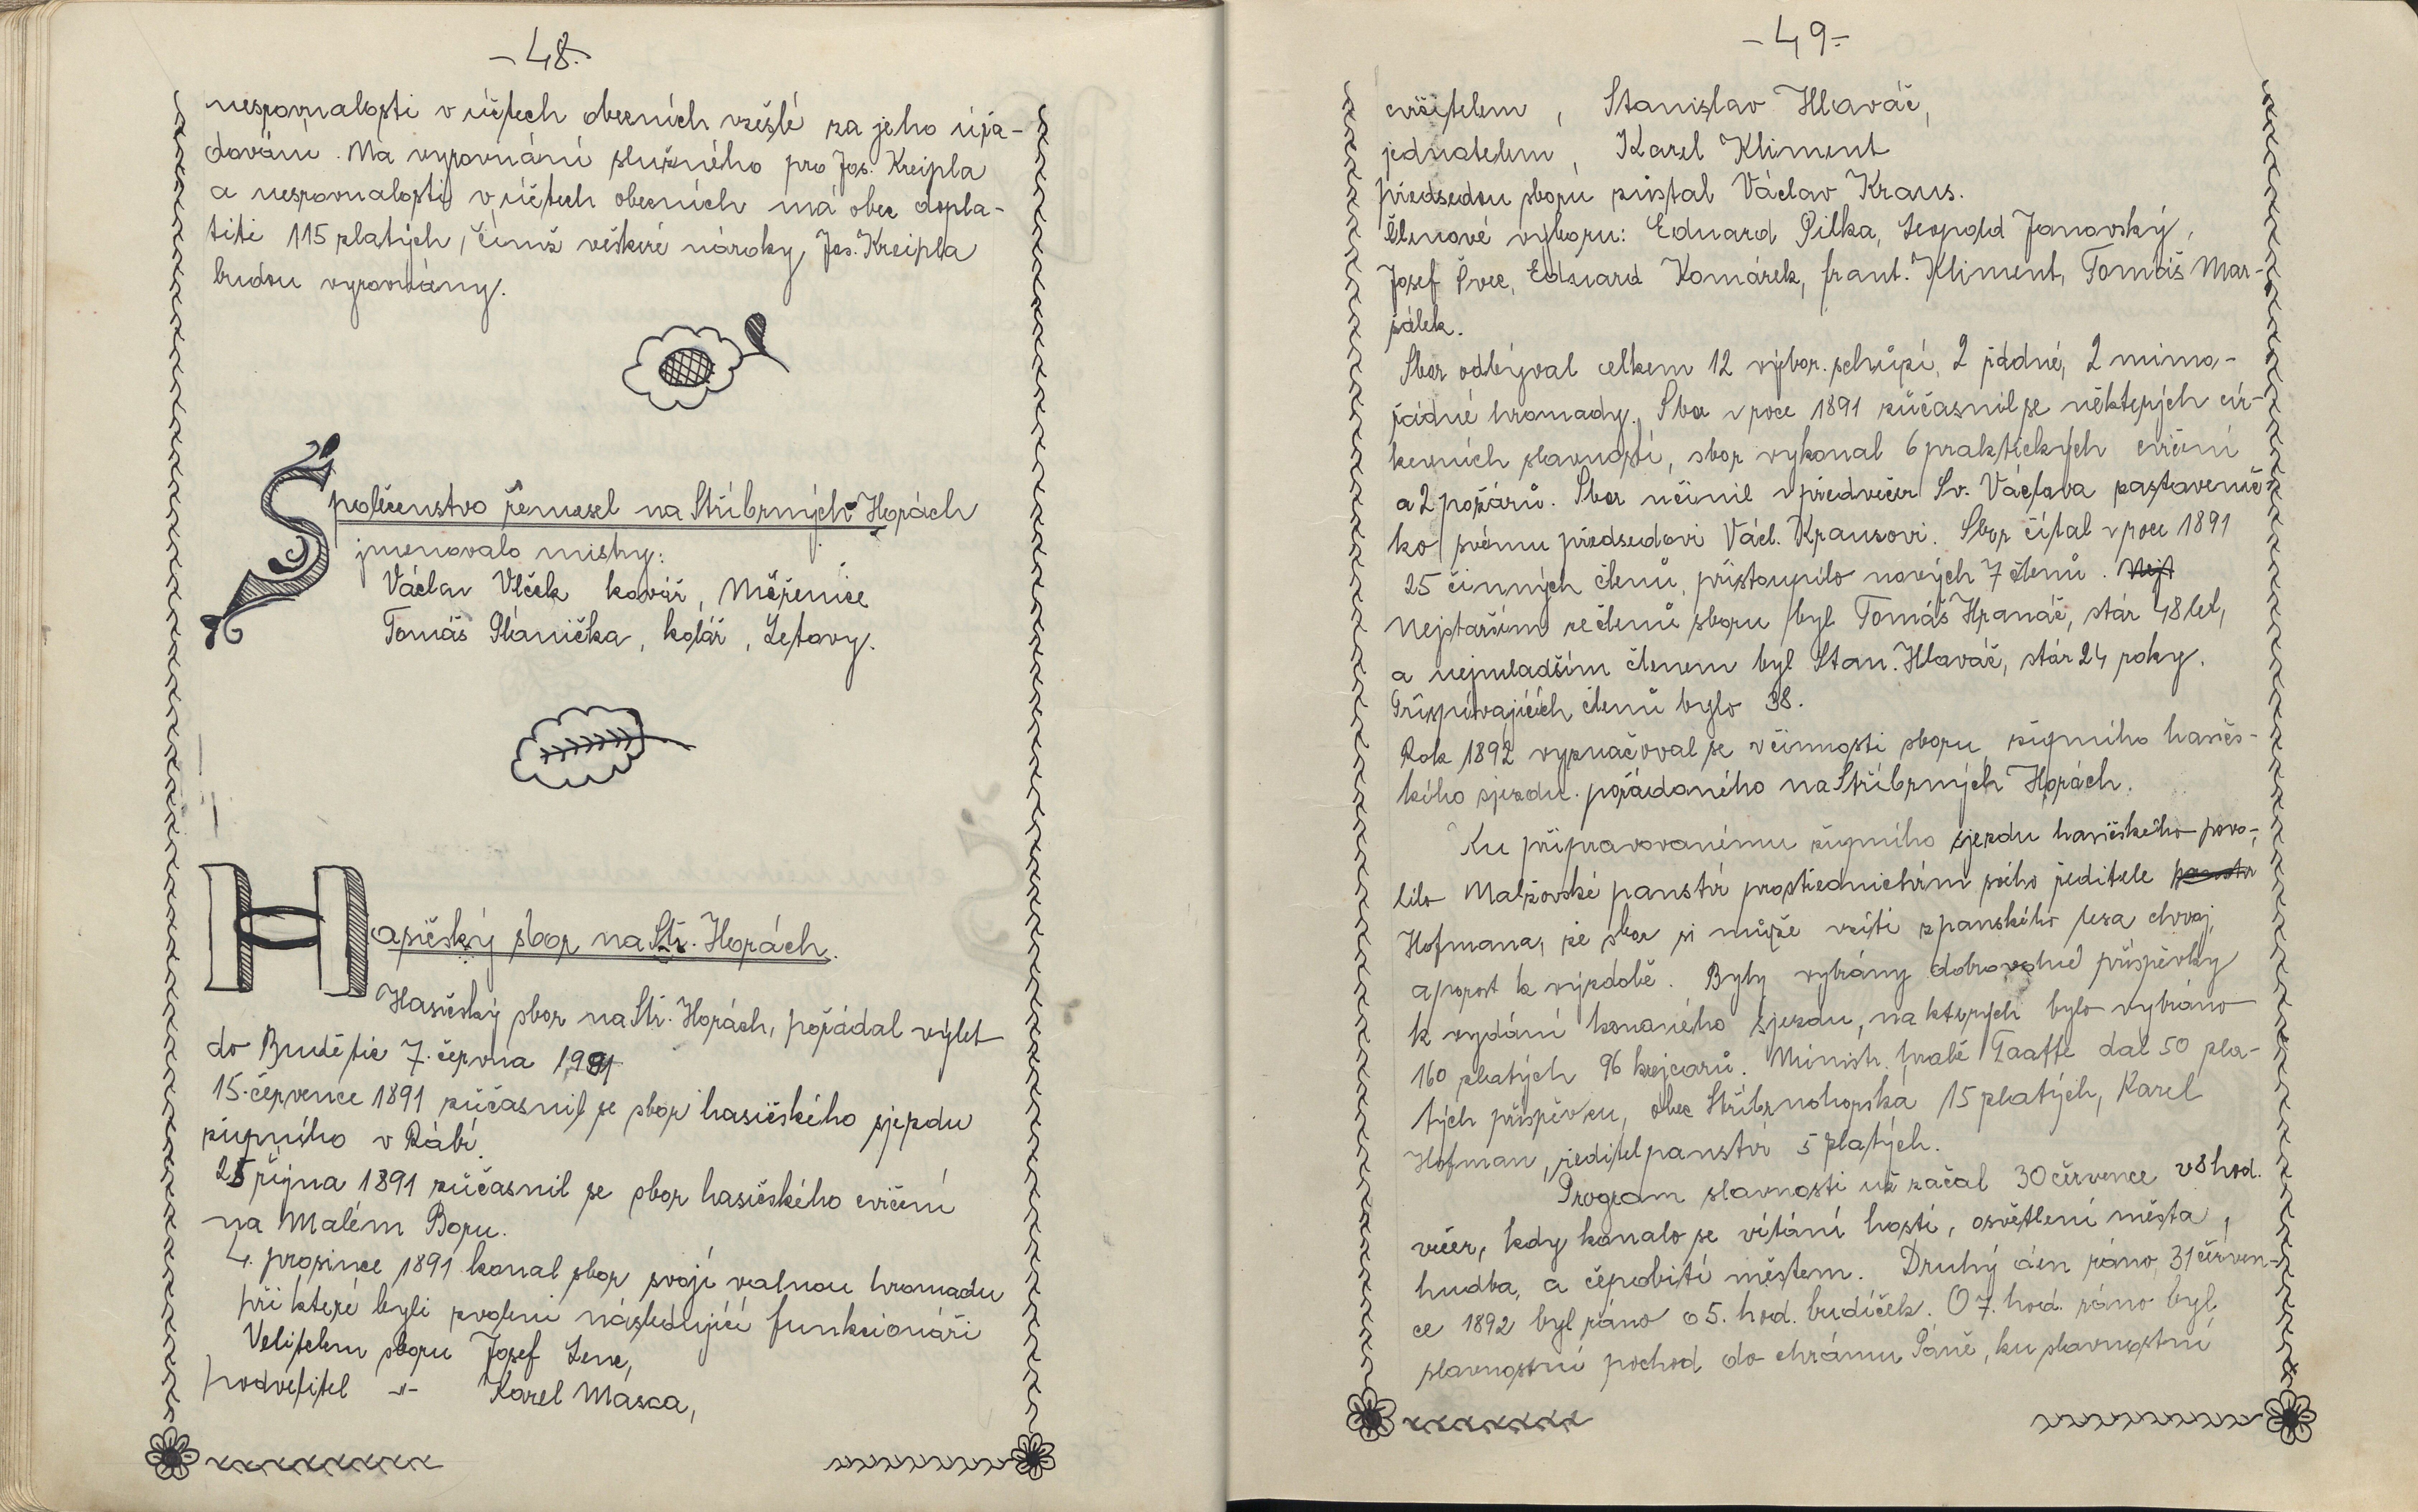 -48.-
nesrovnalosti v účtech obecních vzešlé za jeho úřa-
dování. Na vyrovnání služného pro Jos. Kreipla
a nesrovnalosti v účtech obecních má obec dopla-
titi 115 zlatých, čímž veškeré nároky Jos. Kreipla
budou vyrovnány.
Společenstvo řemesel na Stříbrných Horách
jmenovalo mistry:
Václav Vlček kovář, Mčřenice
Tomáš Plánička, kolář, Letovy.
Hasičský sbor na Stř. Horách.
Hasičský sbor na Stř. Horách, pořádal výlet
do Budětic 7. června 1991
15. července 1891 zůčasnil se sbor hasičského sjezdu
župního v Rábí.
25 října 1891 zůčasnil se sbor hasičského cvičení
na Malém Boru.
4. prosince 1891 konal sbor svojí valnou hromadu
při které byli zvoleni následující funkcionáři
Velitelem sboru Josef Lene,
podvelitel -"- Karel Masca,
-49-
cvičitelem, Stanislav Hlaváč,
jednatelem, Karel Kliment
předsedou sboru zůstal Václav Kraus.
Členové výboru: Eduard Pilka, Leopold Janovský,
Josef Švec, Eduard Komárek, frant. Kliment, Tomáš Mar-
šálek.
Sbor odbýval celkem 12 výbor. schůzí, 2 řádné, 2 mimo-
řádné hromady. Sbor v roce 1891 zůčasnil se některých cír-
kevních slavností, sbor vykonal 6 praktických cvičení
a 2 požárů. Sbor učinil v předvečer Sv. Václava zastaveníč-
ko svému předsedovi Václ. Krausovi. Sbor čítal v roce 1891
25 činných členů, přistoupilo nových 7 členů. Nejs
Nejstarším ze členů sboru byl Tomáš Hranáč, stár 48 let,
a nejmladším členem byl Stan. Hlaváč, stár 24 roky.
Přispívajících členů bylo 38.
Rok 1892 vyznačoval se v činnosti sboru župního hasičs-
kého sjezdu pořádaného na Stříbrných Horách.
Ku připravovanému župního sjezdu hasičského povo-
lilo Malžovské panství prostřednictvím svého ředitele panstv
Hofmana, že sbor si může vzíti z panského lesa chvoj,
a porost k výzdobě. Byly vybrány dobrovolné příspěvky
k vydání konaného sjezdu, na kterých bylo vybráno
160 zlatých 96 krejcarů. Ministr hrabě Taaffe dal 50 zla-
tých příspěvku, obec Stříbrnohorská 15 zlatých, Karel
Hofman, ředitel panství 5 zlatých.
Program slavnosti už začal 30 července v 8 hod.
večer, kdy konalo se vítání hostí, osvětlení města,
hudba, a čepobití městem. Druhý den ráno, 31 červen-
ce 1892 byl ráno o 5. hod. budíček. O 7. hod. ráno byl
slavnostní pochod do chrámu Páně, ku slavnostní